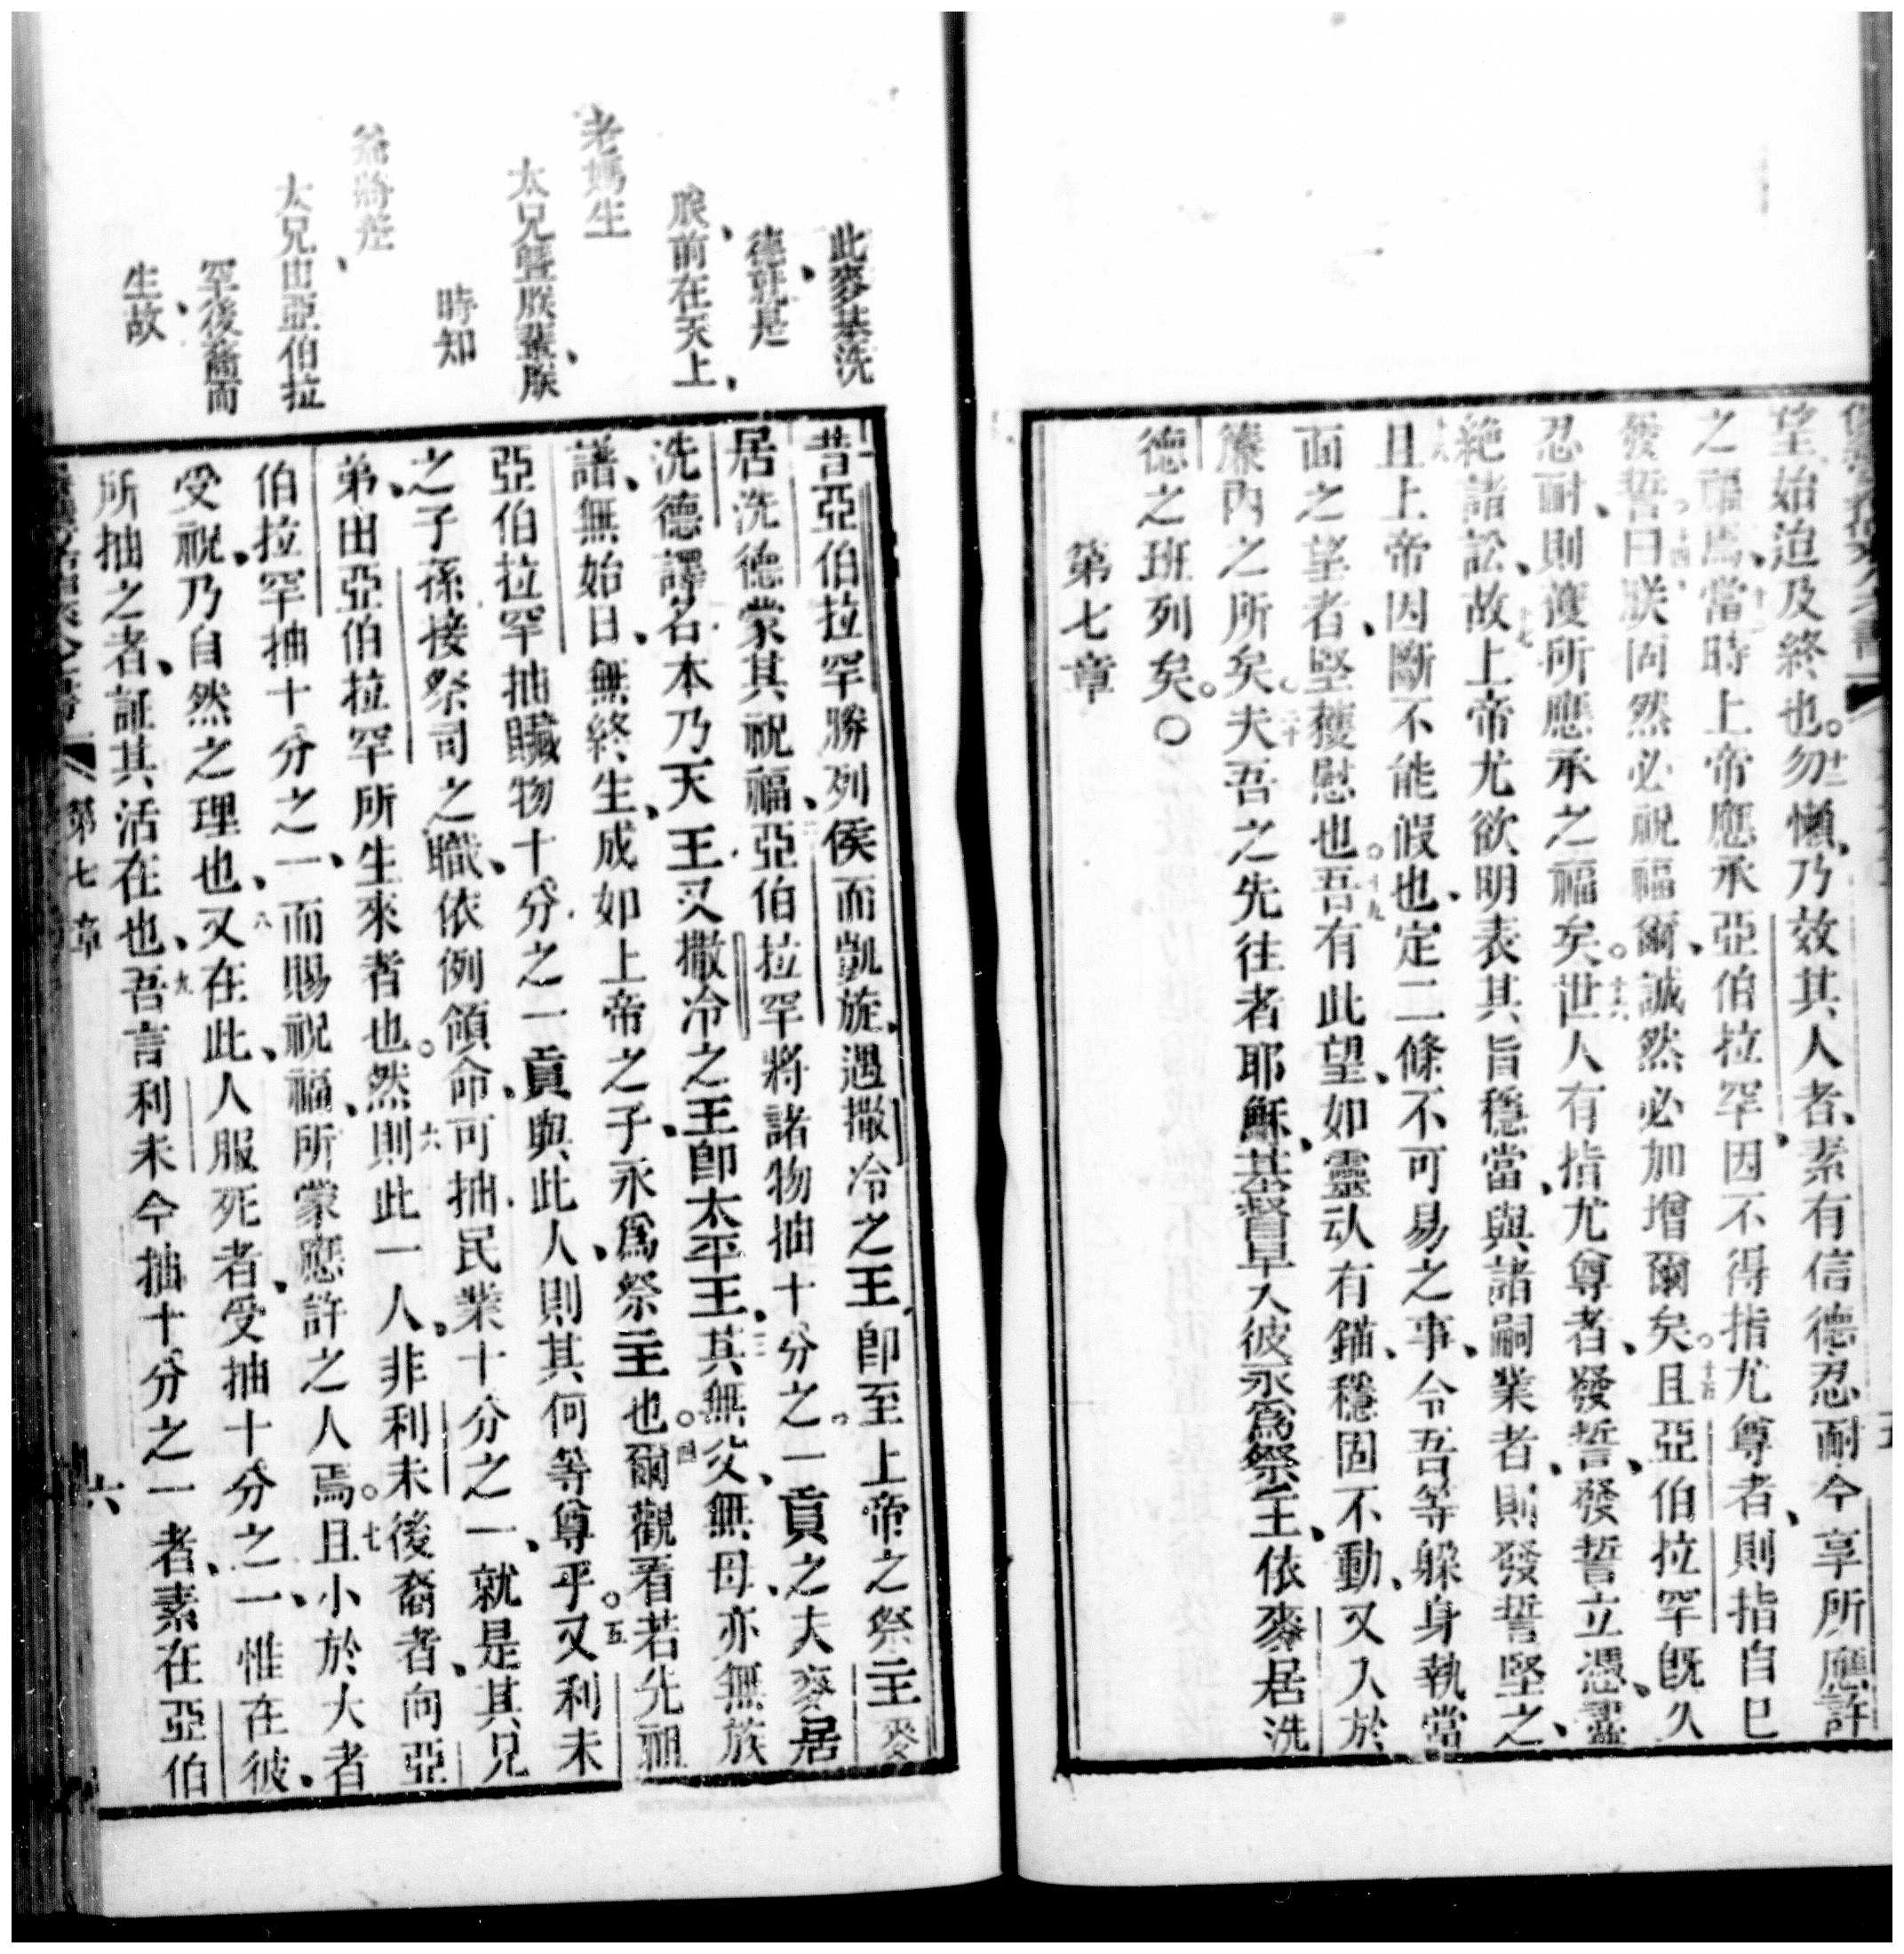 望始迨及終也。十二勿懶、乃效其人者、素有信德忍耐、今享所應許
之福焉、十三當時上帝應承亞伯拉罕、因不得指尤尊者、則指自己
發誓、十四曰朕固然必祝福爾、誠然必加增爾矣。十五且亞伯拉罕旣久
忍耐、則獲所應承之福矣。十六世人有指尤尊者、發誓、發誓立憑、靈
絶諸訟、十七故上帝尤欲明表其旨穩當、與諸嗣業者、則發誓堅之、
十八且上帝因斷不能假也、定二條不可易之事、令吾等躲身執當
面之望者、堅獲慰也。十九吾有此望、如靈㓏有錨、穩固不動、又入於
簾內之所矣。二十夫吾之先往者耶穌、基督早入彼、永爲祭主、依麥居洗
德之班列矣。〇
第七章
此麥基洗
德、就是
朕前在天上、
老媽生
太兄曁朕輩、朕
時知
爺將差
太兄由亞伯拉
罕後裔而
生、故
一昔亞伯拉罕勝列侯而凱旋、遇撒冷之王、卽至上帝之祭主麥
居洗德、蒙其祝福、二亞伯拉罕將諸物抽十分之一貢之、夫麥居
洗德譯名、本乃天王、又撒冷之王、卽太平王、三其無父、無母、亦無族
譜、無始日、無終生、成如上帝之子、永爲祭主也。四爾觀看若先祖
亞伯拉罕抽贓物十分之一貢與此人、則其何等尊乎。五又利未
之子孫接祭司之職、依例領命、可抽民業十分之一、就是其兄
弟、由亞伯拉罕所生來者也。六然則此一人、非利未後裔者、向亞
伯拉罕抽十分之一、而賜祝福、所蒙應許之人焉。七且小於大者
受祝、乃自然之理也、八又在此、人服死者、受抽十分之一、惟在彼、
所抽之者、証其活在也、九吾言利未今抽十分之一者、素在亞伯
第七章
六